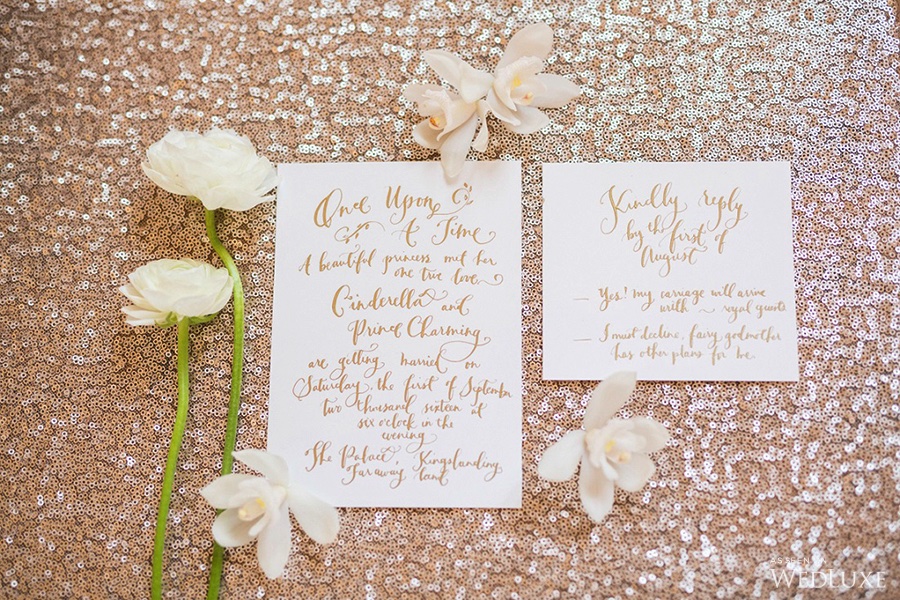 Once Upon
A Time
A beautiful princess met her
one true love,
Cinderella and
Prince Charming
are getting married on
Saturday, the first of September
two thousand sixteen at
six o'clock in the
evening
The Palace, Kingslanding,
Faraway land
Kindly reply
by the first of
August
— Yes! my carriage will arrive
with ~ royal guests
— I must decline, fairy godmother
has other plans for me.
AS SEEN ON
WEDLUXE